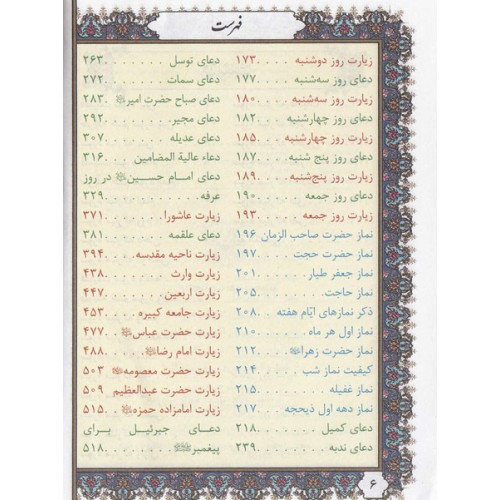 فهرست
زیارت روز دوشنبه ۱۷۳
دعای روز سه‌شنبه ۱۷۷
زیارت روز سه‌شنبه ۱۸۰
دعای روز چهارشنبه ۱۸۲
زیارت روز چهارشنبه ۱۸۵
دعای روز پنج شنبه ۱۸۷
زیارت روز پنج‌شنبه ۱۸۹
دعای روز جمعه ۱۹۰
زیارت روز جمعه ۱۹۳
نماز حضرت صاحب الزمان ۱۹۶
نماز حضرت حجت ۱۹۷
نماز جعفر طیار ۲۰۱
نماز حاجت ۲۰۵
ذکر نمازهای ایّام هفته ۲۰۸
نماز اول هر ماه ۲۱۰
نماز حضرت زهرا ۲۱۲
کیفیت نماز شب ۲۱۴
نماز غفیله ۲۱۵
نماز دهه اول ذیحجه ۲۱۷
دعای کمیل ۲۱۸
دعای ندبه ۲۳۹
دعای توسل ۲۶۳
دعای سمات ۲۷۲
دعای صباح حضرت امیر ۲۸۳
دعای مجیر ۲۹۲
دعای عدیله ۳۰۷
دعاء عالیة المضامین ۳۱۶
دعای امام حسین در روز
عرفه ۳۲۹
زیارت عاشورا ۳۷۱
دعای علقمه ۳۸۱
زیارت ناحیه مقدسه ۳۹۴
زیارت وارث ۴۳۸
زیارت اربعین ۴۴۷
زیارت جامعه کبیره ۴۵۳
زیارت حضرت عباس ۴۷۷
زیارت امام رضا ۴۸۸
زیارت حضرت معصومه ۵۰۳
زیارت حضرت عبدالعظیم ۵۰۹
زیارت امامزاده حمزه ۵۱۵
دعای جبرئیل برای
پیغمبر ۵۱۸
۶